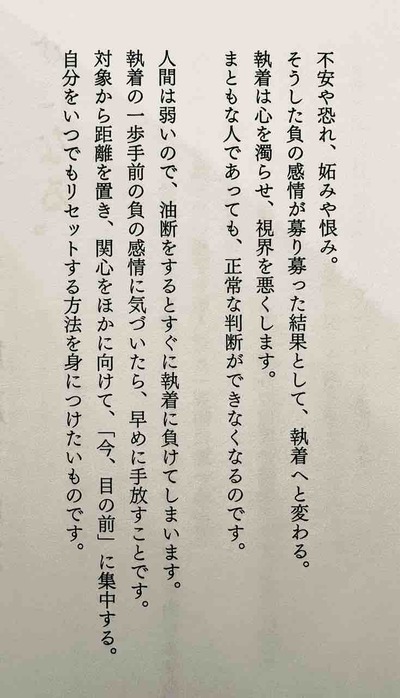 不安や恐れ、妬みや恨み。
そうした負の感情が募り募った結果として、執着へと変わる。
執着は心を濁らせ、視界を悪くします。
まともな人であっても、正常な判断ができなくなるのです。
人間は弱いので、油断をするとすぐに執着に負けてしまいます。
執着の一歩手前の負の感情に気づいたら、早めに手放すことです。
対象から距離を置き、関心をほかに向けて、「今、目の前」に集中する。
自分をいつでもリセットする方法を身につけたいものです。